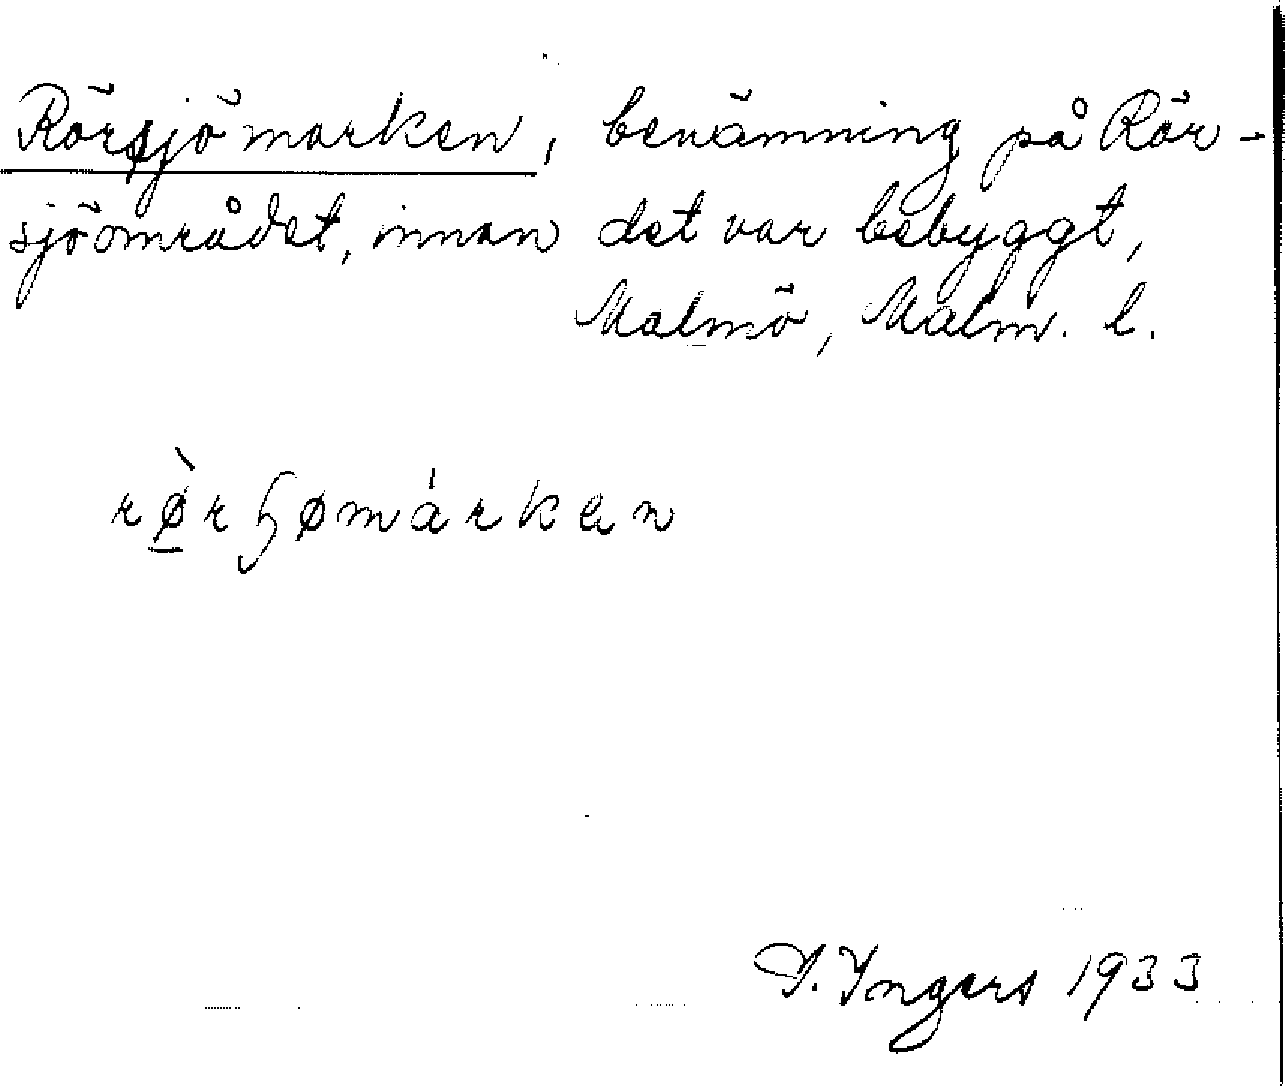 Rörsjömarken, benämning på Rör-
sjöområdet, innan det var bebyggt,
Malmö, Malm. l.
rø̀rɧømárkən
I. Ingers 1933